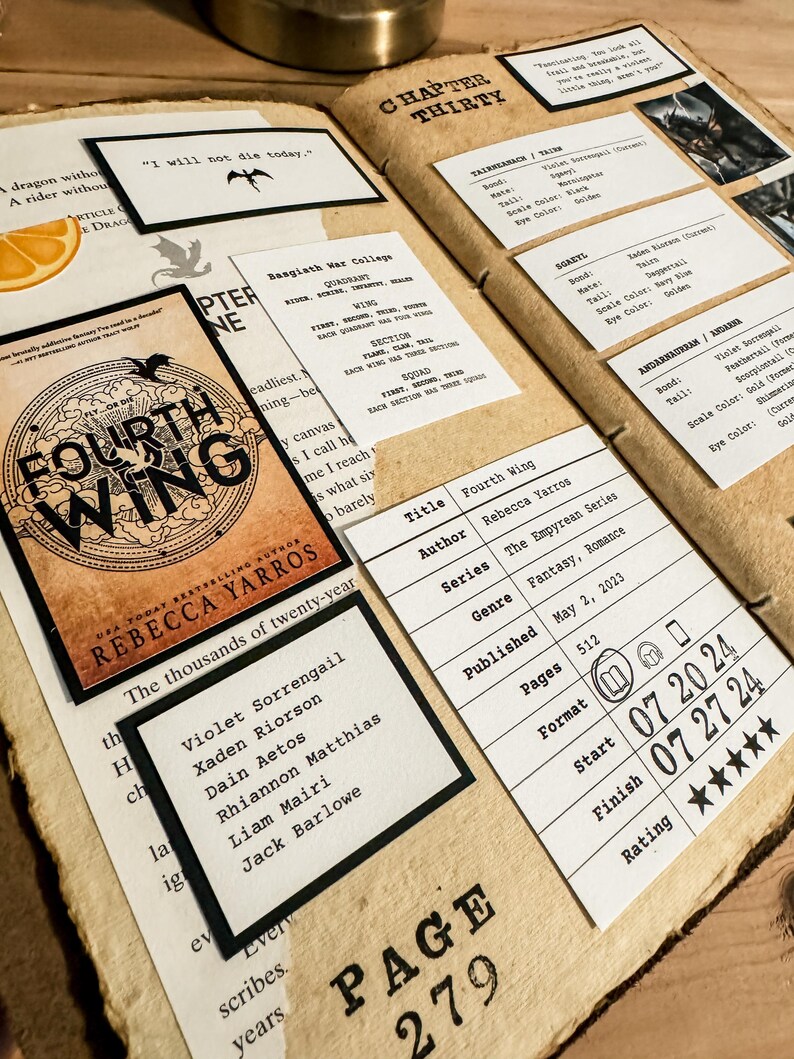 A dragon witho
A rider withou
ARTICLE
E DRAG
"I will not die today."
PTER
NE
eadliest.
ning—bec
y canvas
s I call he
me I reach t
is what six
o barely
The thousands of twenty-year
th
H
ch
la
ig
ev
Every
scribes.
years
most brutally addictive fantasy I've read in a decade!"
—#1 NYT BESTSELLING AUTHOR TRACY WOLFF
FLY...OR DIE
FOURTH
WING
USA TODAY BESTSELLING AUTHOR
REBECCA YARROS
Basgiath War College
QUADRANT
RIDER, SCRIBE, INFANTRY, HEALER
WING
FIRST, SECOND, THIRD, FOURTH
EACH QUADRANT HAS FOUR WINGS
SECTION
FLAME, CLAW, TAIL
EACH WING HAS THREE SECTIONS
SQUAD
FIRST, SECOND, THIRD
EACH SECTION HAS THREE SQUADS
Violet Sorrengail
Xaden Riorson
Dain Aetos
Rhiannon Matthias
Liam Mairi
Jack Barlowe
Title Fourth Wing
Author Rebecca Yarros
Series The Empyrean Series
Genre Fantasy, Romance
Published May 2, 2023
Pages 512
Format
Start 07 20 24
Finish 07 27 24
Rating
PAGE
279
CHAPTER
THIRTY
"Fascinating. You look all
frail and breakable, but
you're really a violent
little thing, aren't you?"
TAIRNEANACH / TAIRN
Bond: Violet Sorrengail (Current)
Mate: Sgaeyl
Tail: Morningstar
Scale Color: Black
Eye Color: Golden
SGAEYL
Bond: Xaden Riorson (Current)
Mate: Tairn
Tail: Daggertail
Scale Color: Navy Blue
Eye Color: Golden
ANDARNAURRAM / ANDARNA
Bond: Violet Sorrengail
Tail: Feathertail (Forme
Scorpiontail (C
Scale Color: Gold (Former
Shimmering
(Curren
Eye Color: Gold